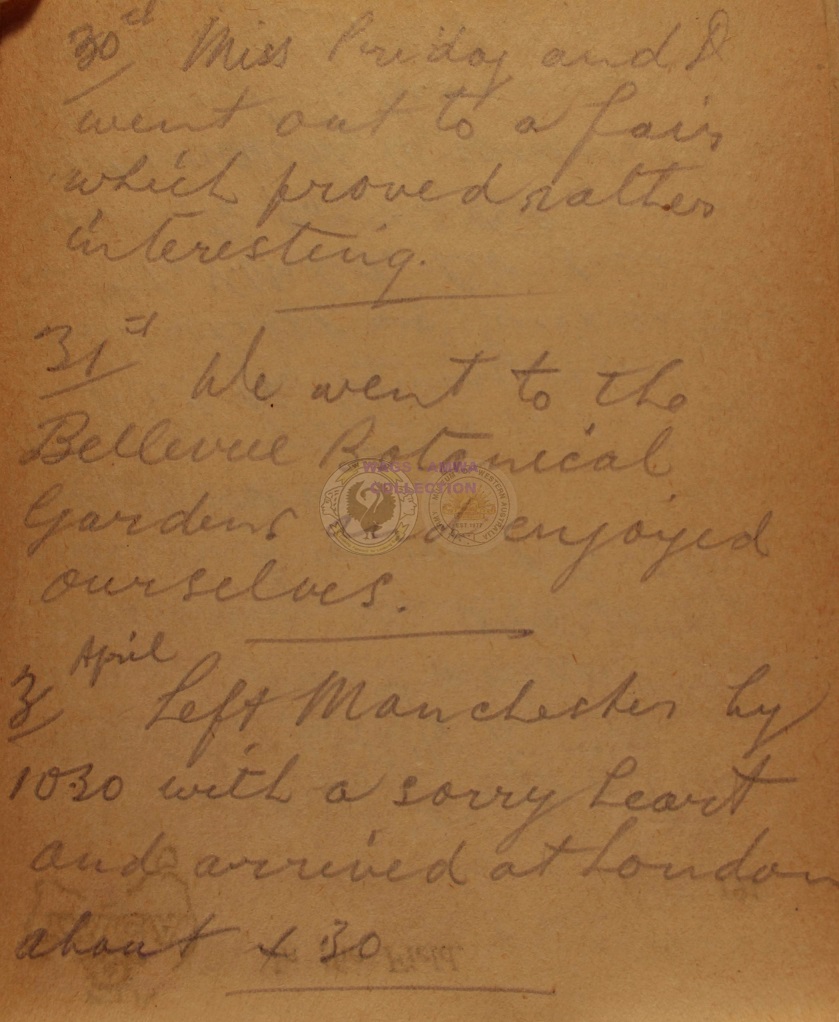 30st Miss Priday and I
went out to a fair
which proved rather
interesting.
31st We went to the
Bellevue Botanical
WAGS - AMWA
COLLECTION
Gardens and enjoyed
ourselves.
April
3 Left Manchester by
1030 with a sorry heart
and arrived at London
about 4 30